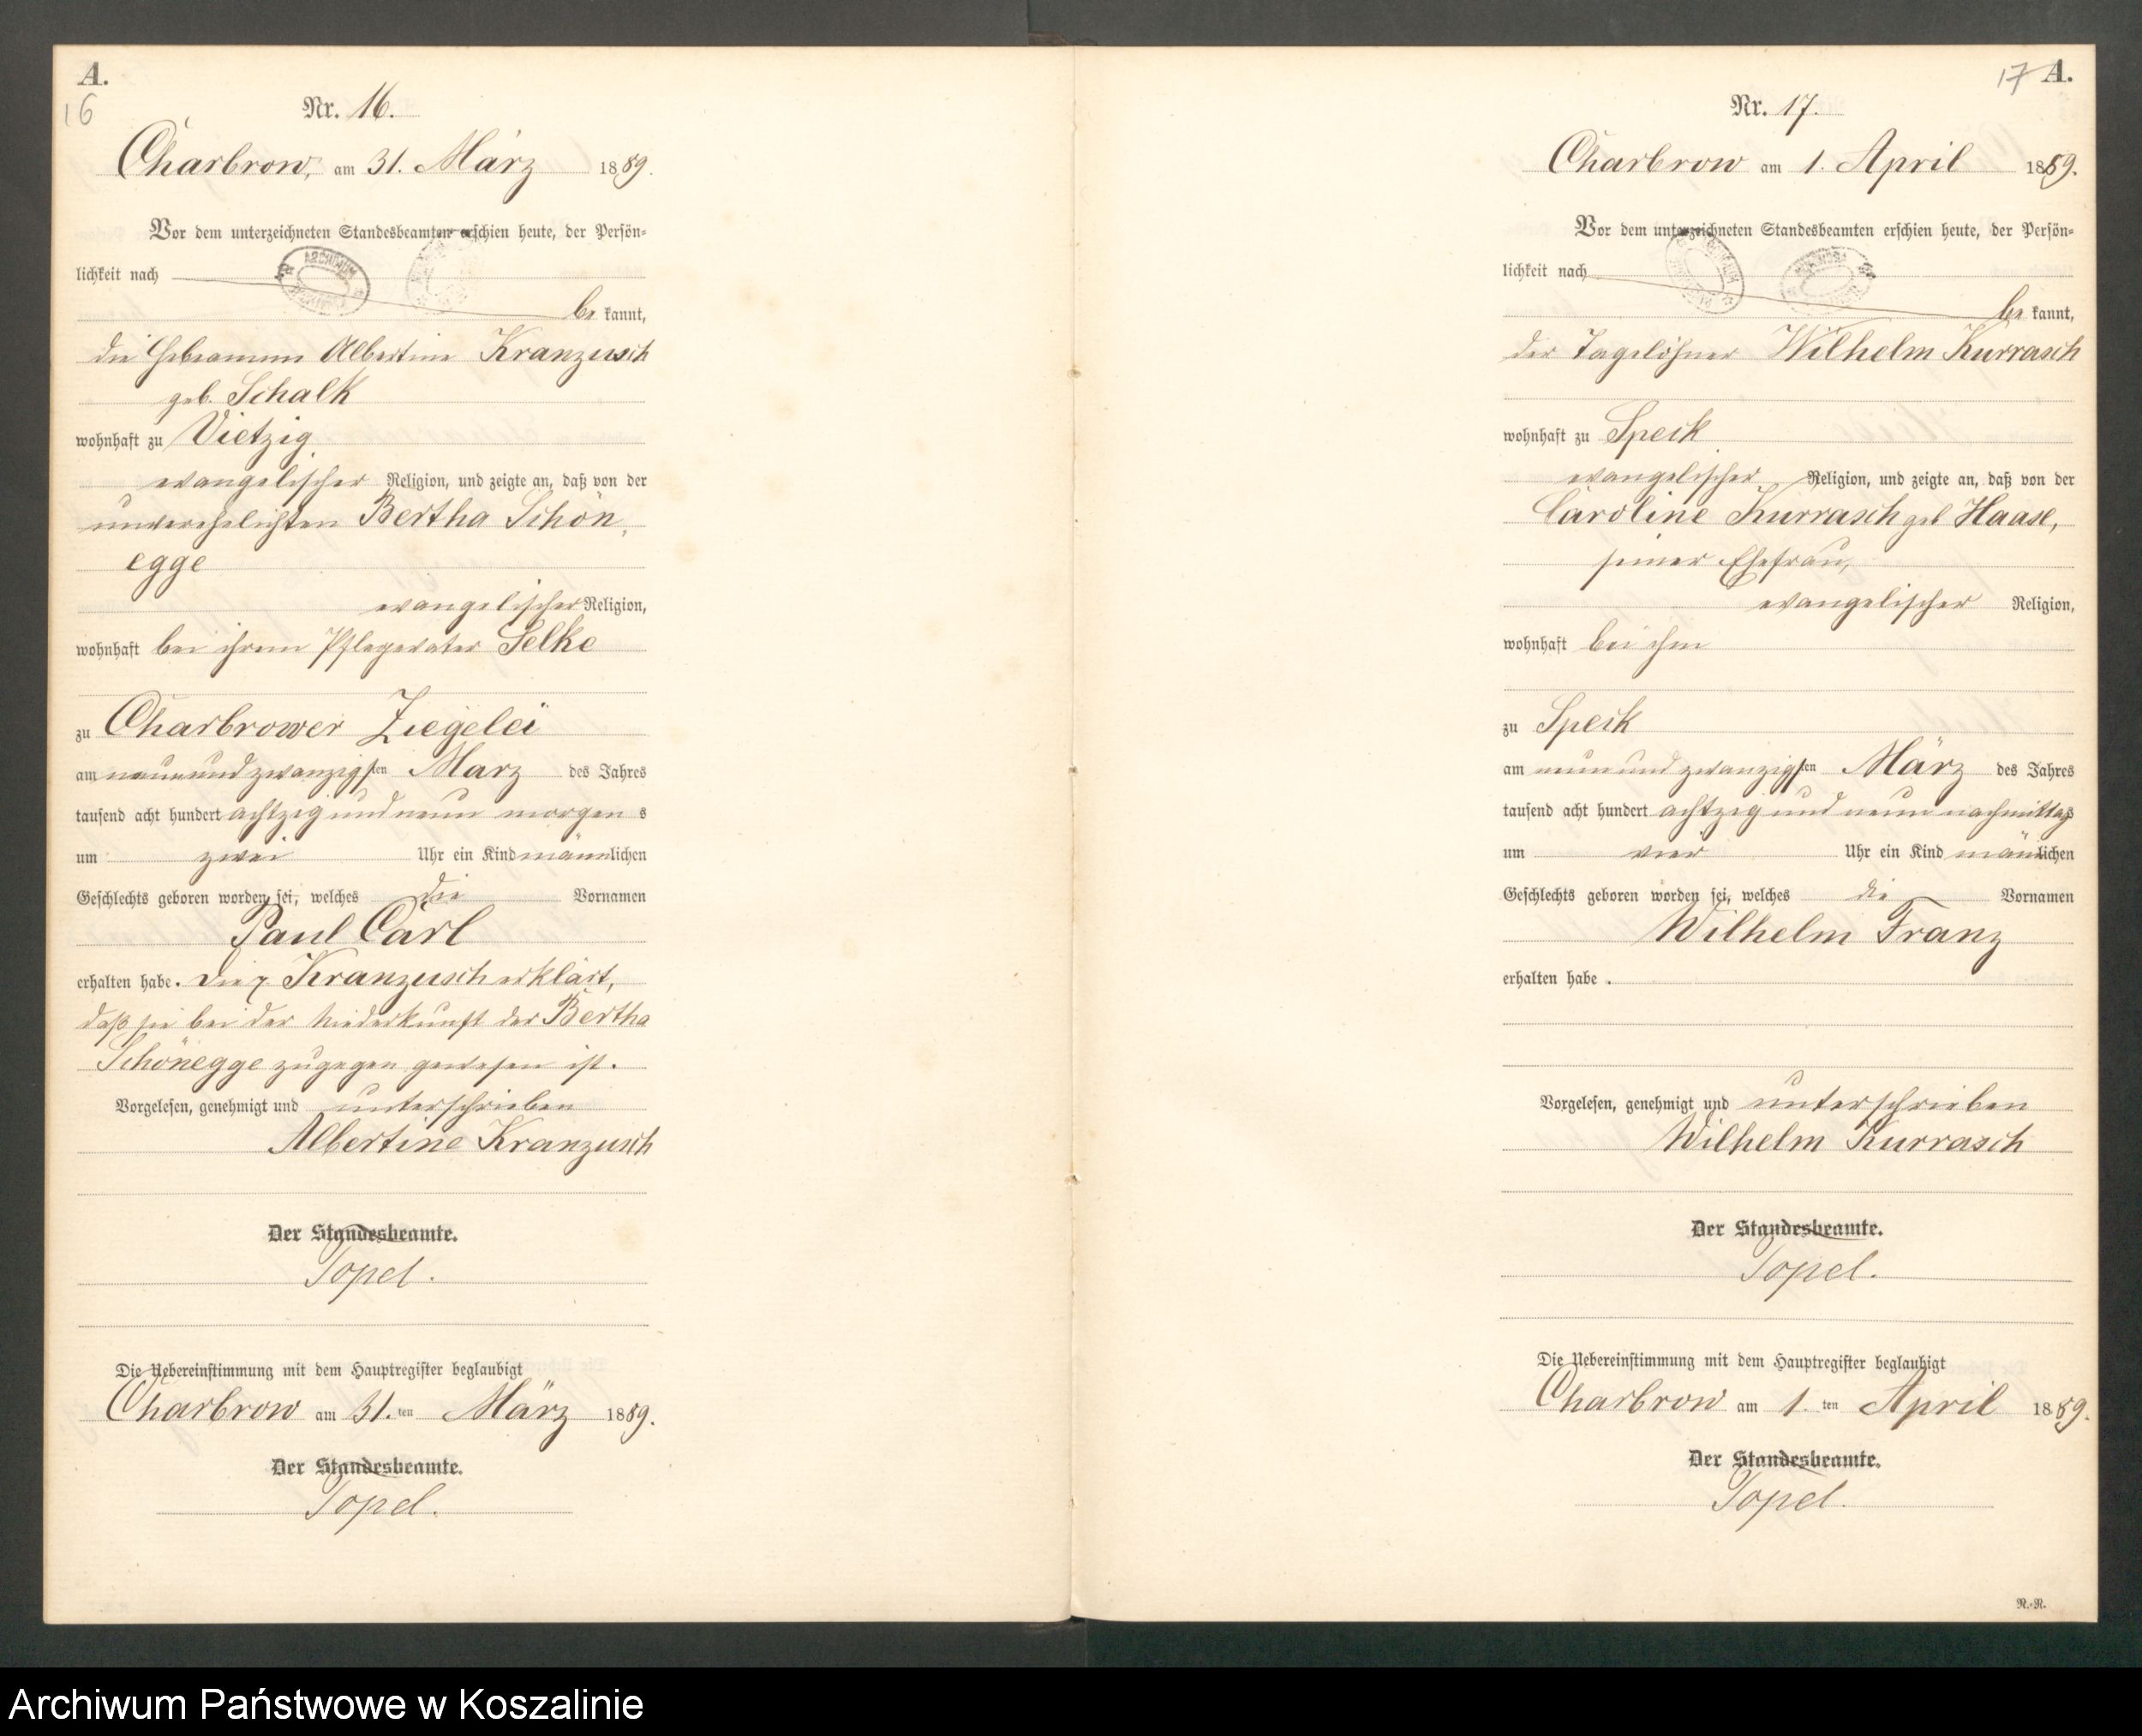 A.
16
Nr. 16.
Charbrow, am 31. März 1889.
Vor dem unterzeichneten Standesbeamten erschien heute, der Persön=
lichkeit nach
be kannt,
die Hebeamme Albertine Kranzusch
geb. Schalk
wohnhaft zu Vietzig
evangelischer Religion, und zeigte an, daß von der
unverehelichten Bertha Schön,
egge
evangelischer Religion,
wohnhaft bei ihrem Pflegevater Selke
zu Charbrower Ziegelei
am neunundzwanzigsten März des Jahres
tausend acht hundert achtzig und neun morgens
um zwei Uhr ein Kind männlichen
Geschlechts geboren worden sei, welches die Vornamen
Paul Carl
erhalten habe. Die p. Kranzusch erklärt,
daß sie bei der Niederkunft der Bertha
Schönegge zugegen gewesen ist.
Vorgelesen, genehmigt und unterschrieben
Albertine Kranzusch
Der Standesbeamte.
Topel.
Die Uebereinstimmung mit dem Hauptregister beglaubigt
Charbrow am 31.ten März 1889.
Der Standesbeamte.
Topel.
17 A.
Nr. 17.
Charbrow am 1. April 1889.
Vor dem unterzeichneten Standesbeamten erschien heute, der Persön=
lichkeit nach
be kannt,
der Tagelöhner Wilhelm Kurrasch
wohnhaft zu Speck
evangelischer Religion, und zeigte an, daß von der
Caroline Kurrasch geb Haase,
seiner Ehefrau,
evangelischer Religion,
wohnhaft bei ihm
zu Speck
am neunundzwanzigsten März des Jahres
tausend acht hundert achtzig und neun nachmittags
um vier Uhr ein Kind männlichen
Geschlechts geboren worden sei, welches die Vornamen
Wilhelm Franz
erhalten habe.
Vorgelesen, genehmigt und unterschrieben
Wilhelm Kurrasch
Der Standesbeamte.
Topel.
Die Uebereinstimmung mit dem Hauptregister beglaubigt
Charbrow am 1. ten April 1889.
Der Standesbeamte.
Topel.
R.-R.
Archiwum Państwowe w Koszalinie